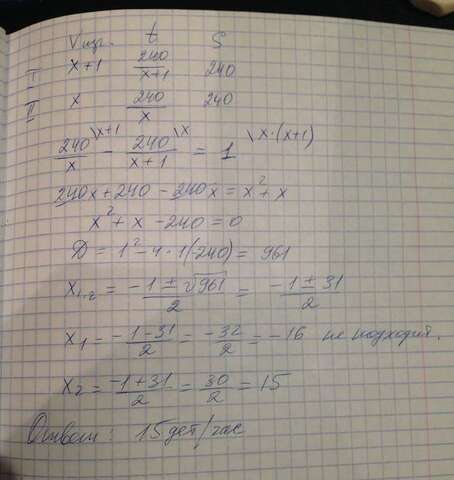 V изг. t S
I x+1 240/(x+1) 240
II x 240/x 240
240/x \x+1 - 240/(x+1) \x = 1 \x·(x+1)
240x + 240 - 240x = x² + x
x² + x - 240 = 0
D = 1² - 4·1(-240) = 961
x₁,₂ = (-1 ± √961)/2 = (-1 ± 31)/2
x₁ = (-1-31)/2 = -32/2 = -16 не подходит.
x₂ = (-1+31)/2 = 30/2 = 15
Ответ: 15 дет/час